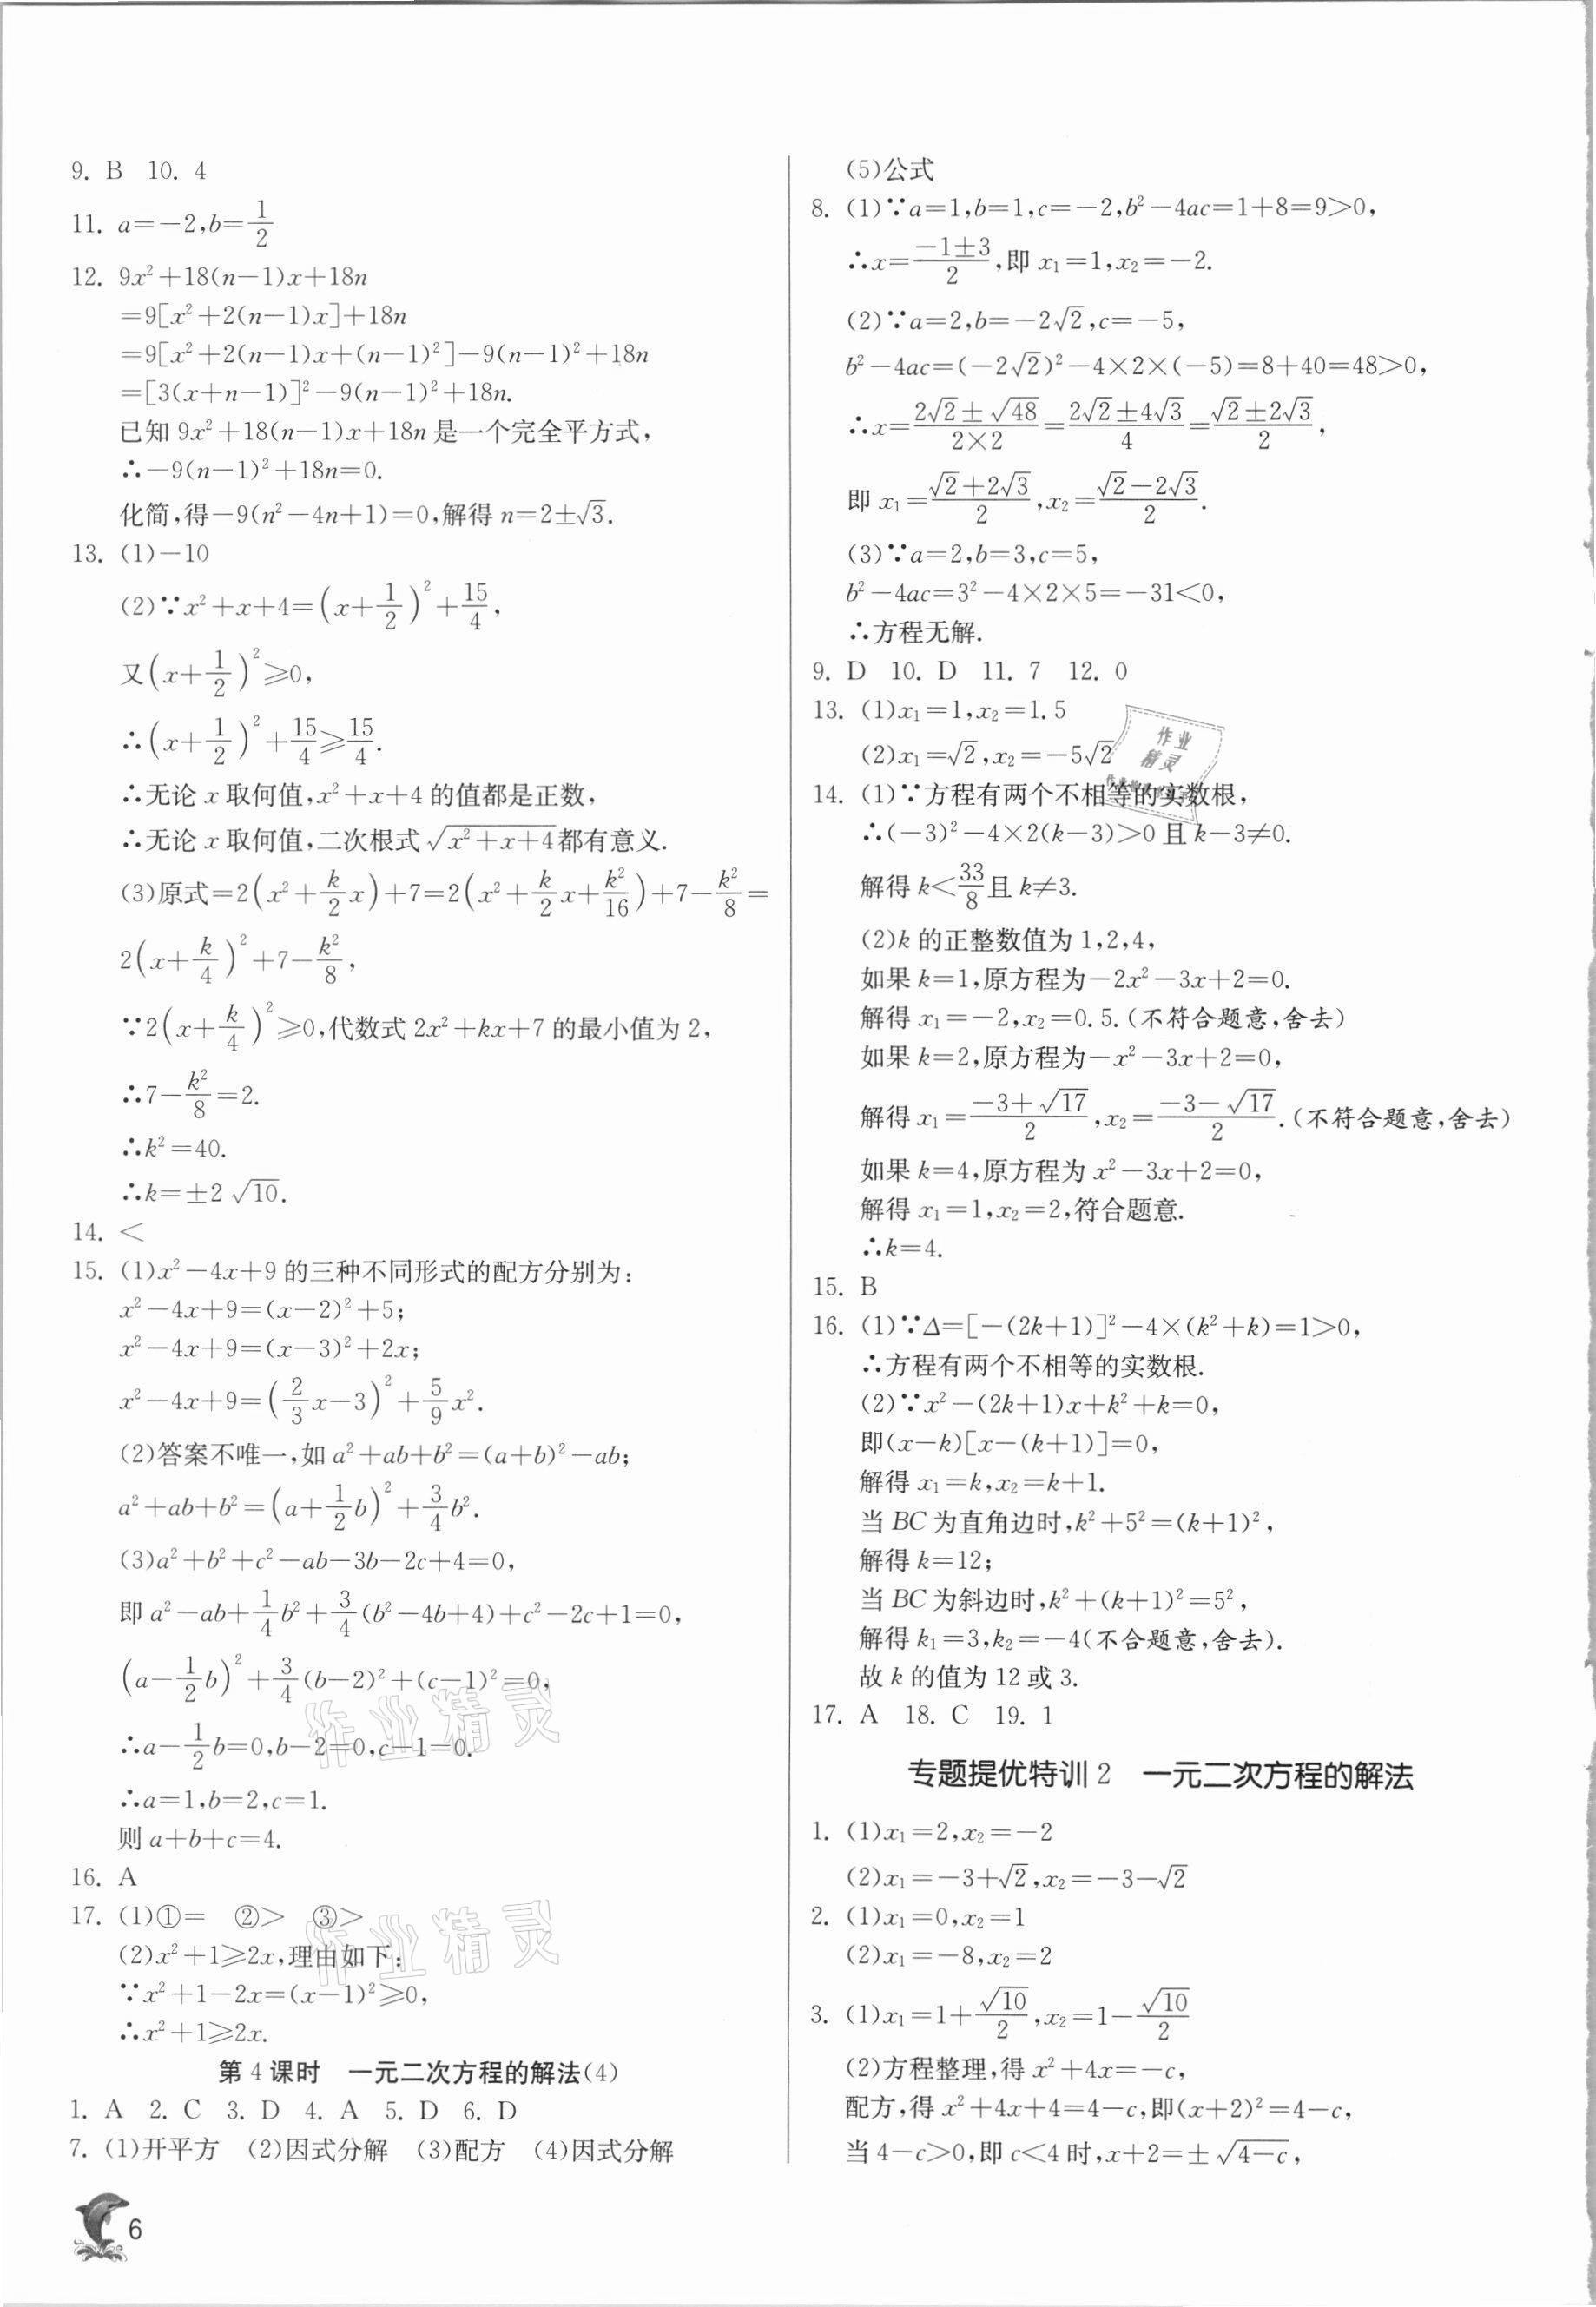 9. B 10. 4
11. a=-2,b=1/2
12. 9x²+18(n-1)x+18n
=9[x²+2(n-1)x]+18n
=9[x²+2(n-1)x+(n-1)²]-9(n-1)²+18n
=[3(x+n-1)]²-9(n-1)²+18n.
已知 9x²+18(n-1)x+18n 是一个完全平方式,
∴-9(n-1)²+18n=0.
化简,得-9(n²-4n+1)=0,解得 n=2±√3.
13. (1)-10
(2)∵x²+x+4=(x+1/2)²+15/4,
又(x+1/2)²≥0,
∴(x+1/2)²+15/4≥15/4.
∴无论 x 取何值,x²+x+4 的值都是正数,
∴无论 x 取何值,二次根式√(x²+x+4)都有意义.
(3)原式=2(x²+k/2 x)+7=2(x²+k/2 x+k²/16)+7-k²/8=
2(x+k/4)²+7-k²/8,
∵2(x+k/4)²≥0,代数式 2x²+kx+7 的最小值为 2,
∴7-k²/8=2.
∴k²=40.
∴k=±2√10.
14. <
15. (1)x²-4x+9 的三种不同形式的配方分别为:
x²-4x+9=(x-2)²+5;
x²-4x+9=(x-3)²+2x;
x²-4x+9=(2/3 x-3)²+5/9 x².
(2)答案不唯一,如 a²+ab+b²=(a+b)²-ab;
a²+ab+b²=(a+1/2 b)²+3/4 b².
(3)a²+b²+c²-ab-3b-2c+4=0,
即 a²-ab+1/4 b²+3/4(b²-4b+4)+c²-2c+1=0,
(a-1/2 b)²+3/4(b-2)²+(c-1)²=0,
∴a-1/2 b=0,b-2=0,c-1=0.
∴a=1,b=2,c=1.
则 a+b+c=4.
16. A
17. (1)①= ②> ③>
(2)x²+1≥2x,理由如下:
∵x²+1-2x=(x-1)²≥0,
∴x²+1≥2x.
第 4 课时 一元二次方程的解法(4)
1. A 2. C 3. D 4. A 5. D 6. D
7. (1)开平方 (2)因式分解 (3)配方 (4)因式分解
(5)公式
8. (1)∵a=1,b=1,c=-2,b²-4ac=1+8=9>0,
∴x=(-1±3)/2,即 x₁=1,x₂=-2.
(2)∵a=2,b=-2√2,c=-5,
b²-4ac=(-2√2)²-4×2×(-5)=8+40=48>0,
∴x=(2√2±√48)/(2×2)=(2√2±4√3)/4=(√2±2√3)/2,
即 x₁=(√2+2√3)/2,x₂=(√2-2√3)/2.
(3)∵a=2,b=3,c=5,
b²-4ac=3²-4×2×5=-31<0,
∴方程无解.
9. D 10. D 11. 7 12. 0
13. (1)x₁=1,x₂=1.5
(2)x₁=√2,x₂=-5√2
作业
精灵
14. (1)∵方程有两个不相等的实数根,
∴(-3)²-4×2(k-3)>0 且 k-3≠0.
解得 k<33/8且 k≠3.
(2)k 的正整数值为 1,2,4,
如果 k=1,原方程为-2x²-3x+2=0.
解得 x₁=-2,x₂=0.5.(不符合题意,舍去)
如果 k=2,原方程为-x²-3x+2=0,
解得 x₁=(-3+√17)/2,x₂=(-3-√17)/2.(不符合题意,舍去)
如果 k=4,原方程为 x²-3x+2=0,
解得 x₁=1,x₂=2,符合题意.
∴k=4.
15. B
16. (1)∵Δ=[-(2k+1)]²-4×(k²+k)=1>0,
∴方程有两个不相等的实数根.
(2)∵x²-(2k+1)x+k²+k=0,
即(x-k)[x-(k+1)]=0,
解得 x₁=k,x₂=k+1.
当 BC 为直角边时,k²+5²=(k+1)²,
解得 k=12;
当 BC 为斜边时,k²+(k+1)²=5²,
解得 k₁=3,k₂=-4(不合题意,舍去).
故 k 的值为 12 或 3.
17. A 18. C 19. 1
专题提优特训 2 一元二次方程的解法
1. (1)x₁=2,x₂=-2
(2)x₁=-3+√2,x₂=-3-√2
2. (1)x₁=0,x₂=1
(2)x₁=-8,x₂=2
3. (1)x₁=1+√10/2,x₂=1-√10/2
(2)方程整理,得 x²+4x=-c,
配方,得 x²+4x+4=4-c,即(x+2)²=4-c,
当 4-c>0,即 c<4 时,x+2=±√(4-c),
作业精灵
作业精灵
6